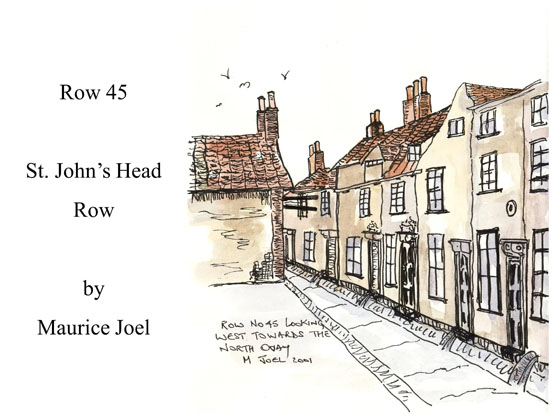 Row 45
St. John's Head
Row
by
Maurice Joel
ROW NO 45 LOOKING
WEST TOWARDS THE
NORTH QUAY
M JOEL 2001